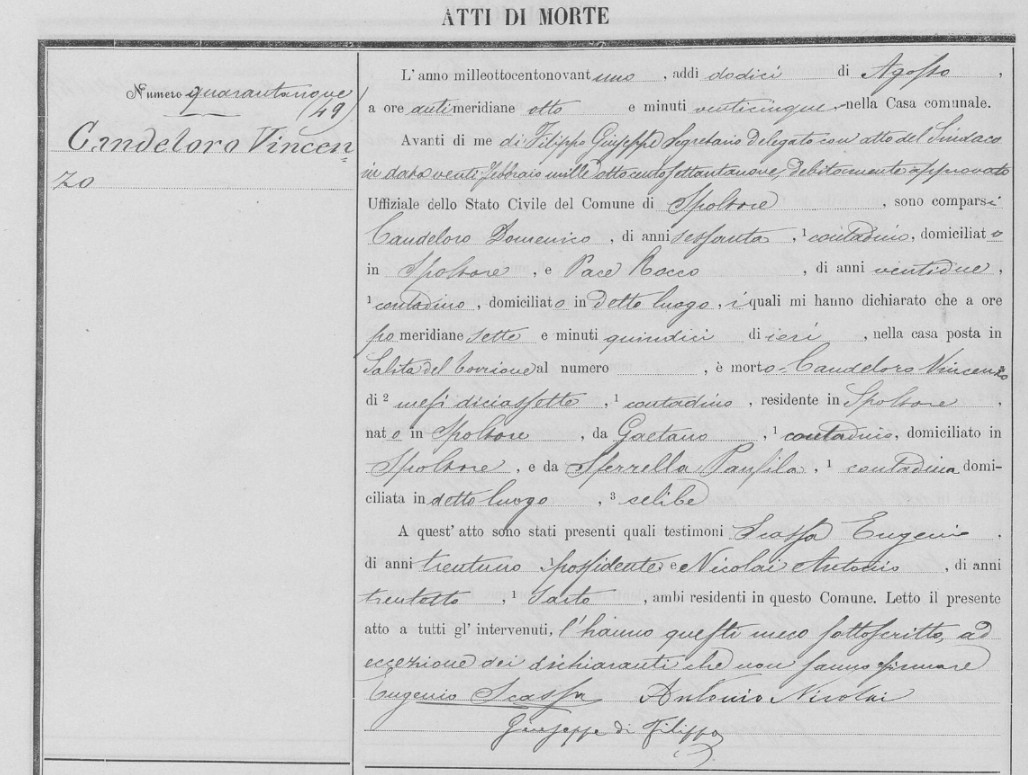 ATTI DI MORTE
Numero quarantanove
(49)
Candeloro Vincen=
zo
L'anno milleottocentonovantuno, addi dodici di Agosto,
a ore antimeridiane otto e minuti venticinque, nella Casa comunale.
Avanti di me di Filippo Giuseppe Segretario Delegato con atto del Sindaco
in data venti Febbraio mille ottocento settantanove, debitamente approvato
Uffiziale dello Stato Civile del Comune di Spoltore, sono comparsi
Candeloro Domenico, di anni sessanta, ¹ contadino, domiciliato
in Spoltore, e Pace Rocco, di anni ventidue,
¹ contadino, domiciliato in detto luogo, i quali mi hanno dichiarato che a ore
pomeridiane sette e minuti quindici di ieri, nella casa posta in
Salita del Torrione al numero , è morto = Candeloro Vincenzo
di ² mesi diciassette, ¹ contadino, residente in Spoltore,
nato in Spoltore, da Gaetano, ¹ contadino, domiciliato in
Spoltore, e da Sferrella Panfila, ¹ contadina domi-
ciliata in detto luogo, ³ celibe
A quest'atto sono stati presenti quali testimoni Scassa Eugenio,
di anni trentuno possidente, e Nicolai Antonio, di anni
trentotto, ¹ Sarto, ambi residenti in questo Comune. Letto il presente
atto a tutti gl'intervenuti, l'hanno questi meco sottoscritto, ad
eccezione dei dichiaranti che non sanno firmare
Eugenio Scassa Antonio Nicolai
Giuseppe di Filippo